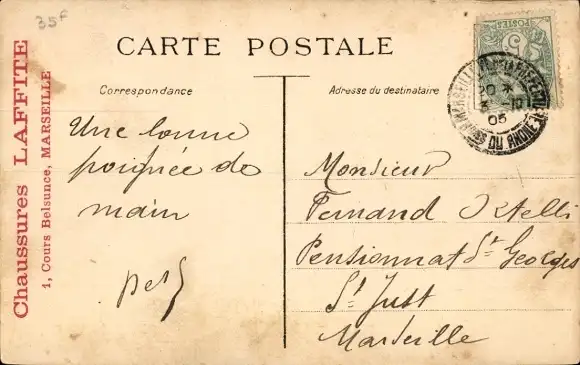 35F
CARTE POSTALE
Correspondance
Adresse du destinataire
Chaussures LAFFITE
1, Cours Belsunce, MARSEILLE
POSTES
MARSEILLE
DU RHONE
20 *
05
Une bonne
poignée de
main
Monsieur
Fernand
Pensionnat St Georges
St Just
Marseille